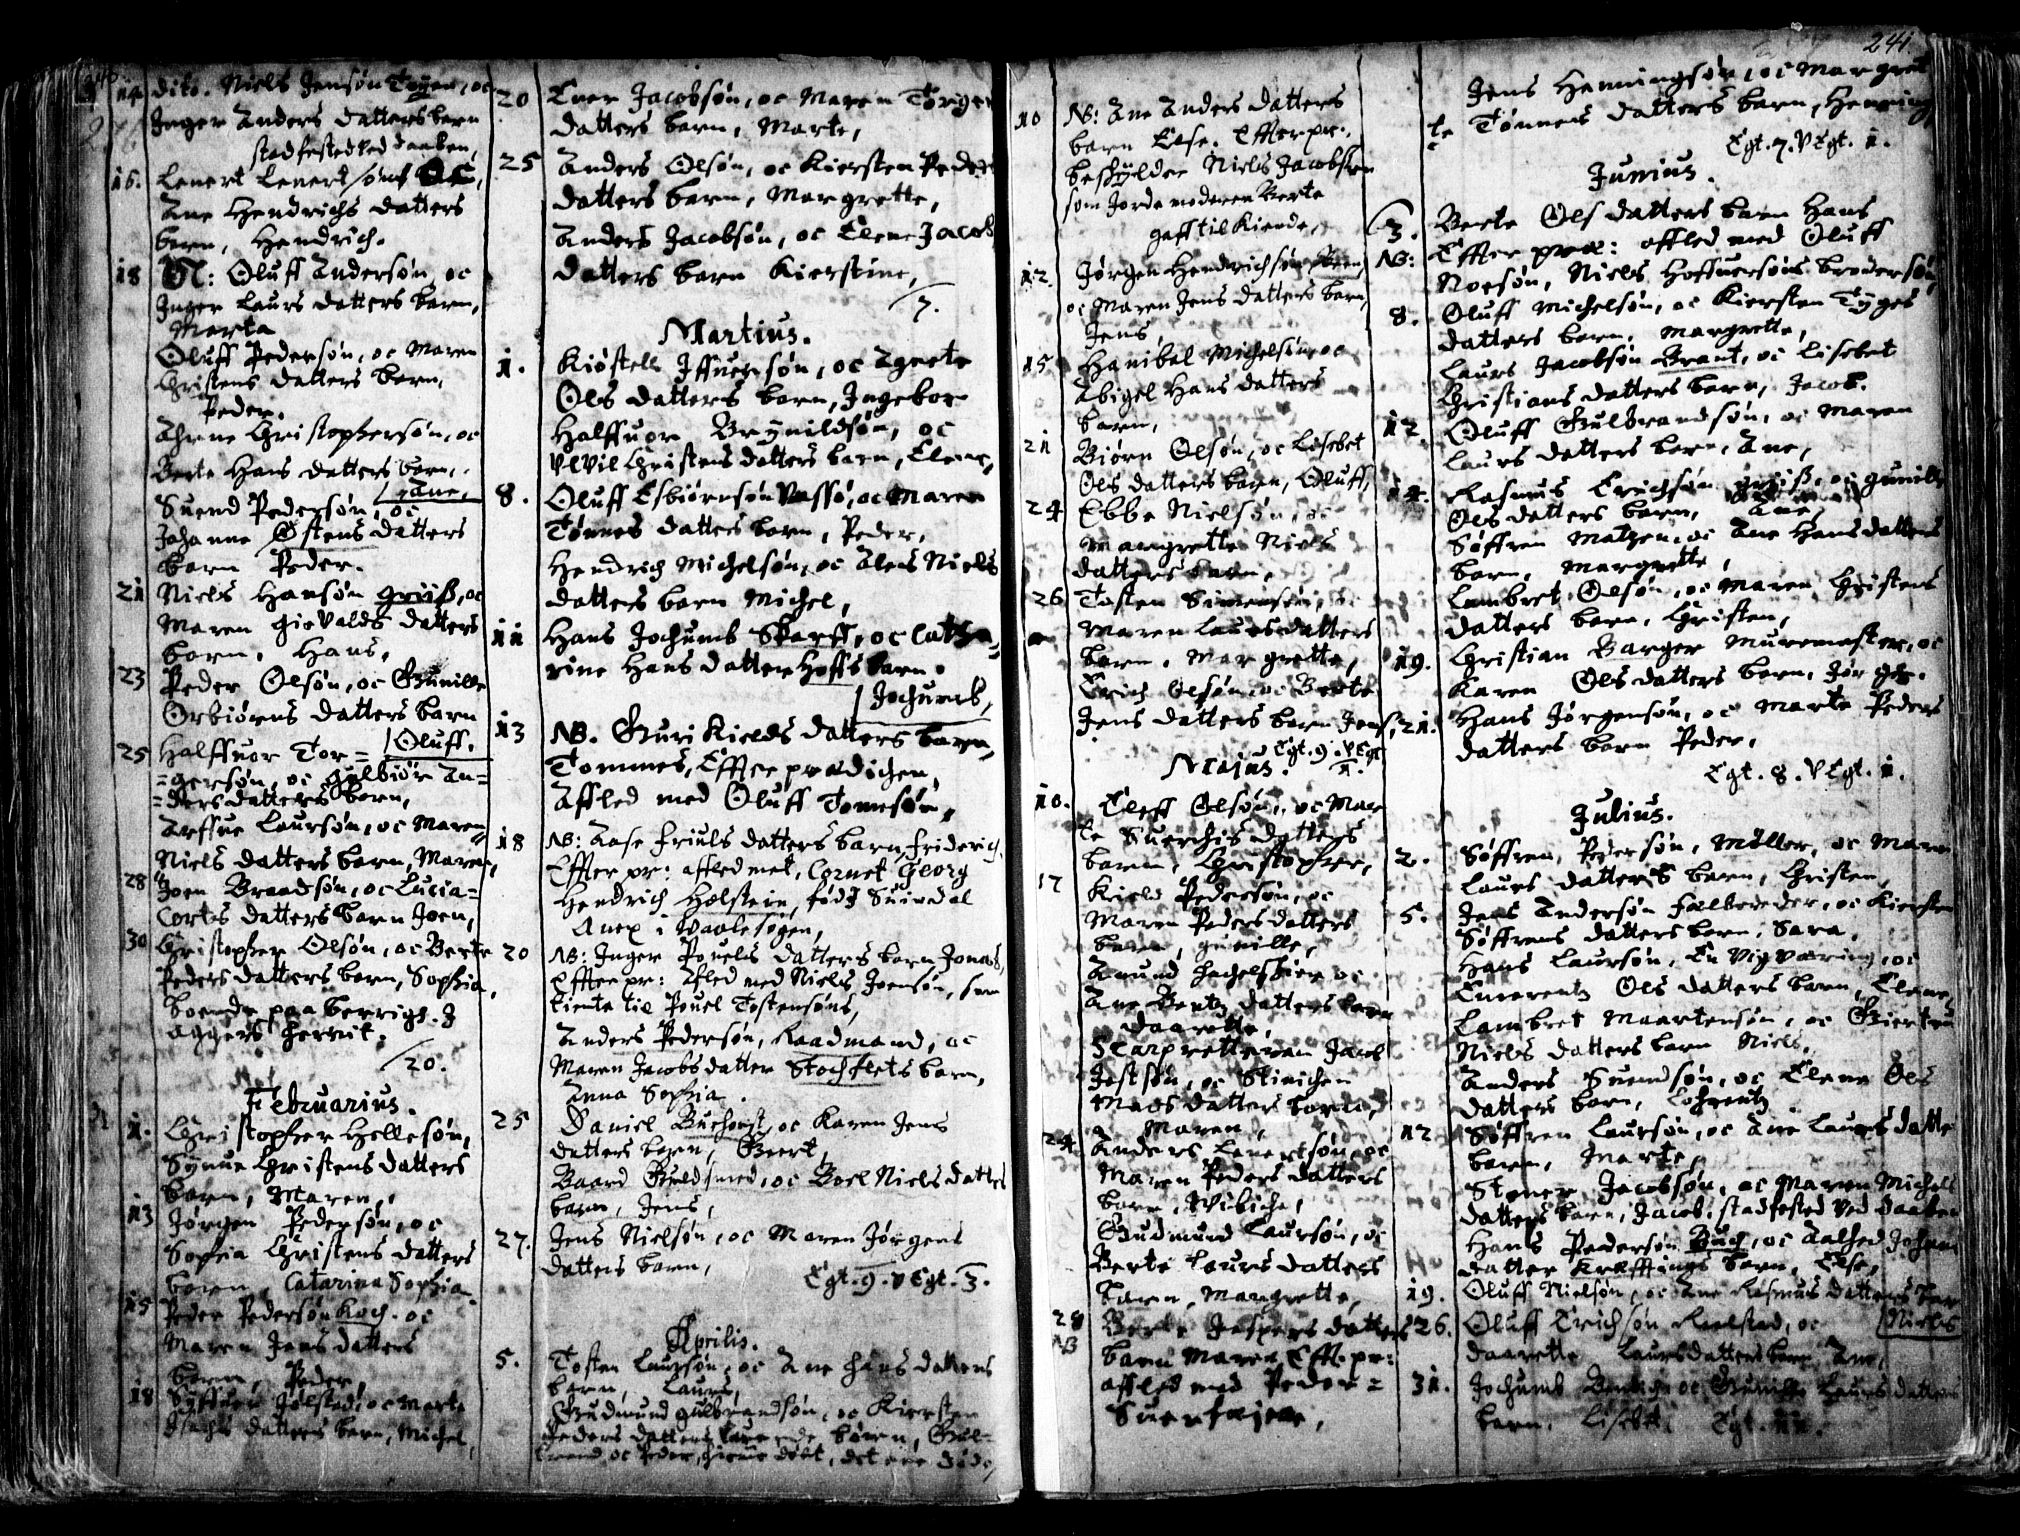 14 dito. Niels Jensøn Toyen, oc
Inger Anders datters barn
stadfested ved daaben,
16. Lenert Lenertsøns
Ane Hendrichs datters
barn, Hendrich.
18 Oluff Andersøn, oc
Inger Laurs datters barn,
Marta
Oluff Pedersøn, oc Maren
Christens datters barn,
Peder.
Christophersøn, oc
Berte Hans datters barn,
Ane,
Suend Pedersøn, oc
Johanne Østens datters
barn Peder.
21 Niels Hansøn griiß, oc
Maren gisvalds datters
barn, Hans,
23 Peder Olsøn, oc Gunille
Orbiørns datters barn
Oluff.
25 Halffuor Tor=
=gersøn, oc gulbiør An=
=ders datters barn,
Laursøn, oc Maren
Niels datters barn, Maren,
28 Joen Brandsøn, oc Lucia
Cortes datters barn Joen,
30 Christopher Olsøn, oc Berte
Peders datters barn, Sophia,
boende paa
aggers herrit.
20.
Februarius.
1. Christopher Hellesøn,
Synue Christens datters
barn, Maren,
13 Jørgen Pedersøn, oc
Sophia Christens datters
barn, Catarina Sophia
15 Peder Pedersøn Koch. oc
Maren Jens datters
barn, Peder,
18 oc Marte
datters barn, Michel,
20 Iver Jacobsøn, oc Maren
datters barn, Marte,
25 Anders Olsøn, oc Kiersten Peders
datters barn, Margrette,
Anders Jacobsøn, oc Elene Jacobs
datters barn Kierstine,
7.
Martius.
1. Kiøstell Iffuersøn, oc Agnete
Ols datters barn, Ingebor
Halffuor Brynildsøn, oc
Christens datters barn, Elene,
8. Oluff Esbiørnsøn Vassø, oc Maren
Tønnes datters barn, Peder,
Hendrich Michelsøn, oc Alens Niels
datters barn Michel,
11 Hans Jochumb Skarff, oc Catha=
rine Hans datter Hoffs barn.
Jochumb,
13 NB. Guri Kields datters barn,
Tommes, Effter prædichen,
Afled med Oluff Tomesøn,
18 NB: Aase friuls datters barn, friderich
Effter pr: afled met, Cornet Georg
Hendrich Holstein, fød I Suindal
Anex i Waale sogen,
20 NB: Inger Pouels datters barn Jonas,
Effter pr: Afled med Niels Joensøn, som
tiente til Pouel Tostensøns,
Anders Pedersøn, Raadmand, oc
Maren Jacobs datter Stochflets barn,
Anna Sophia.
25 Daniel Buchorst, oc Karen Jens
datters barn, Geert,
Baard Guldsmed, oc Boel Niels datters
barn, Jens,
27. Jens Nielsøn, oc Maren Jørgens
datters barn,
Egt. 9. VEgt. 3.
Aprilis.
5. Tosten Laursøn, oc Ane Hans datters
barn, Laurs,
Gudmund gulbrandsøn, oc Kiersten
Peders datters børen, Gul=
brand, oc Peder, døbt, det ene
10 NB: Ane Anders datters
barn Else. Effter pr:
beskylder Niels Jacobsen
som Jorde moderen Berte
gaff til Kiende,
12. Jørgen Hendrichsøn
oc Maren Jens datters barn,
Jens
15 Hanibal Michelsøn, oc
Abigel Hans datters
barn,
21 Biørn Olsøn, oc Lisebet
Ols datters barn, Oluff,
24 Ebbe Nielsøn, oc
Margrette Niels
datters barn,
26 Tosten Simensøn, oc
Maren Laurs datters
barn. Margrette,
Erich Olsøn, oc Berte
Jens datters barn Jens,
Egt. 9. VEgt.
1.
Majus.
10. Eleff Olsøn, oc Mar
te Suerchis datters
barn, Christopher,
17 Kield Pedersøn, oc
Maren Peders datters
barn, gunille,
Amund oc
Ane Bentz datters barn
daarette,
Jacob
Jostsøn, oc Stinichen
Mads datters barn,
Maren,
24. Anders Lenertsøn, oc
Maren Peders datters
barn, Wibiche,
Gudmund Laursøn, oc
Berte Laurs datters
barn, Margrette,
28 Berte Jespers datters
NB barn Maren, Eff. pr:
afled med Peder=
241.
Jens Henningsøn, oc Margret
te Tønnes datters barn, Henning
Egt. 7. VEgt. 1.
Junius.
3. Berte Ols datters barn Hans
NB: Effter præ: afled med Oluff
Roesøn, Niels Hoffuersøns brodersøn,
8. Oluff Michelsøn, oc Kiersten Tyges
datters barn, Margrette,
Laurs Jacobsøn Brant, oc Lisebet
Christians datters barn, Jacob.
12. Oluff Gulbrandsøn, oc Maren
Laurs datters barn, Ane,
14. Rasmus Erichsøn griiß, oc gunille
Ols datters barn, Ane,
Søffren Matzen, oc Ane Hans datters
barn, Margrette,
Lambret Olsøn, oc Maren Christens
datters barn, Christen,
19. Christian Barger Muremester, oc
Karen Ols datters barn, Jørgen.
21. Hans Jørgensøn, oc Marte Peders
datters barn Peder,
Egt. 8. VEgt. 1.
Julius.
2. Søffren Pedersøn, Møller, oc Maren
Laurs datters barn, Christen,
5. Jens Andersøn oc Kiersten
Søffrens datters barn, Sara,
Hans Laursøn, En Vigværing, oc
Ols datters barn, Elene,
Lambret Maartensøn, oc Giertru
Niels datters barn Niels,
Anders Suendsøn, oc Elene Ols
datters barn,
12 Søffren Laursøn, oc Ane Laurs datters
barn, Marte,
Stener Jacobsøn, oc Maren Michels
datters barn, Jacob, stadfested ved daaben
Hans Pedersøn Buch, oc Aalhed Johan
datter barn, Else,
19. Oluff Nielsøn, oc Ane Rasmus datters bar
Niels
26. Oluff Erichsøn oc
daarette Laurs datters barn Ane,
31. Jochumb oc Laurs datters
barn. Egt. 11.